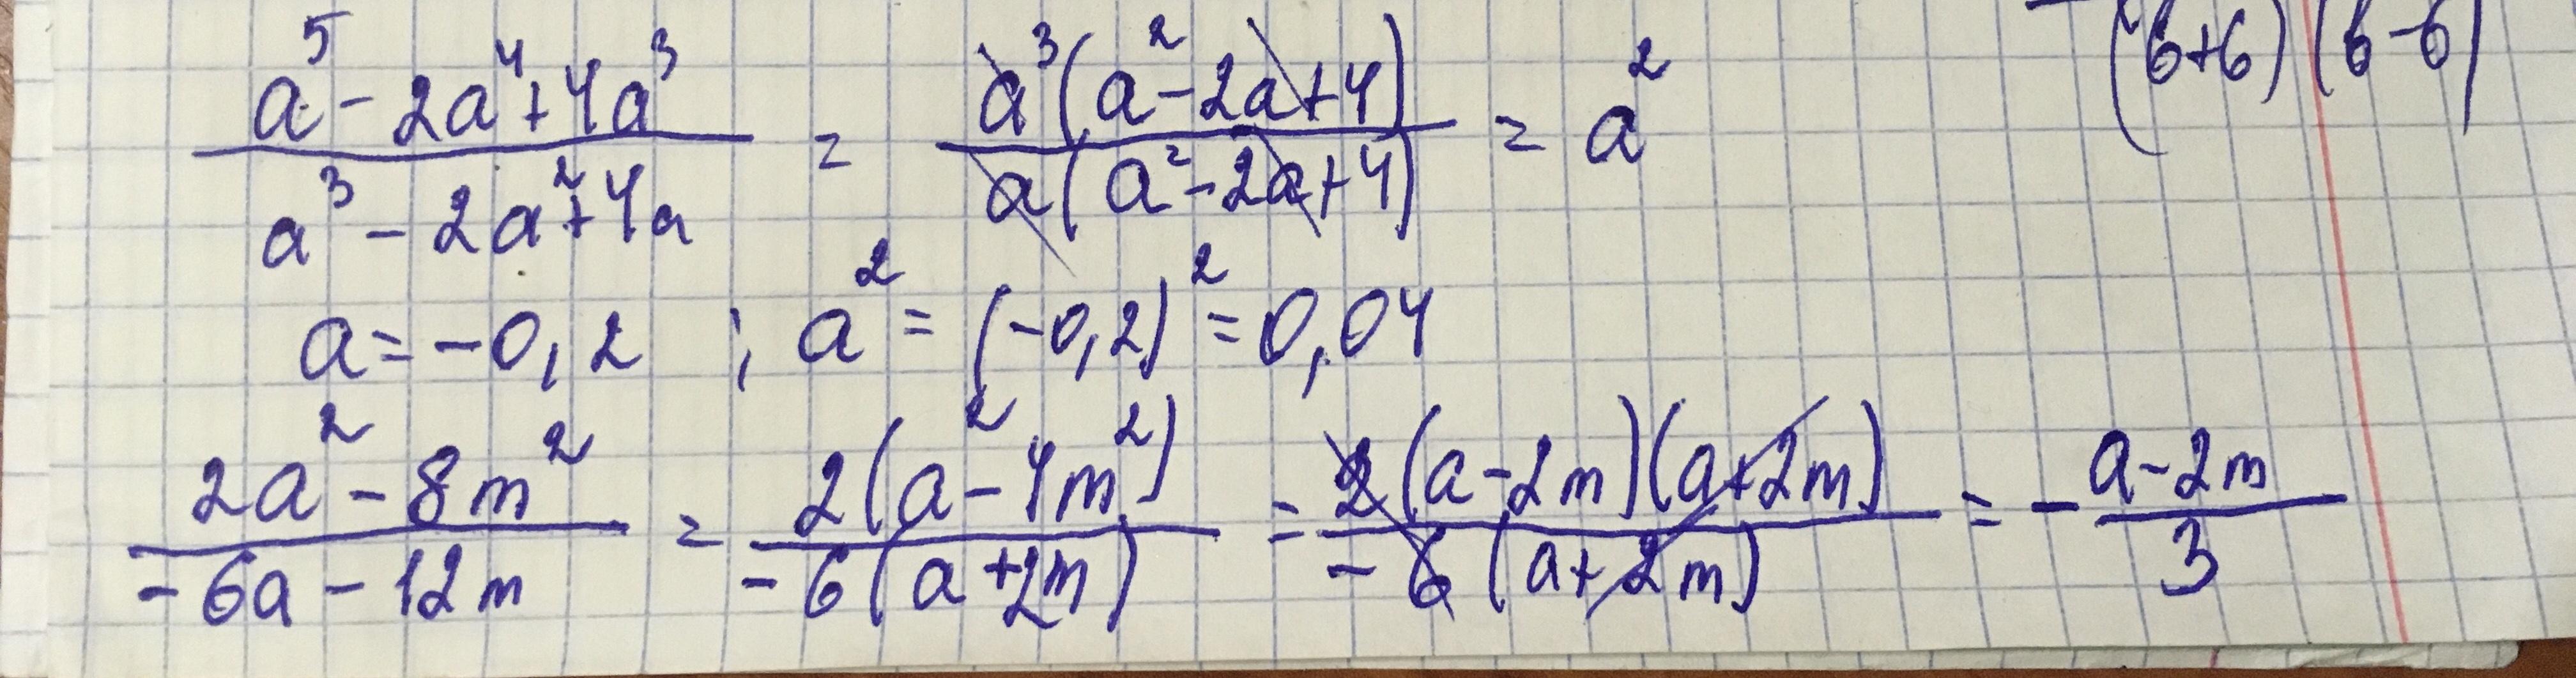 (b+6)(b-6)
(a⁵-2a⁴+4a³)/(a³-2a²+4a) = (a³(a²-2a+4))/(a(a²-2a+4)) = a²
a=-0,2 ; a²=(-0,2)²=0,04
(2a²-8m²)/(-6a-12m) = (2(a²-4m²))/(-6(a+2m)) = (2(a-2m)(a+2m))/(-6(a+2m)) = -(a-2m)/3